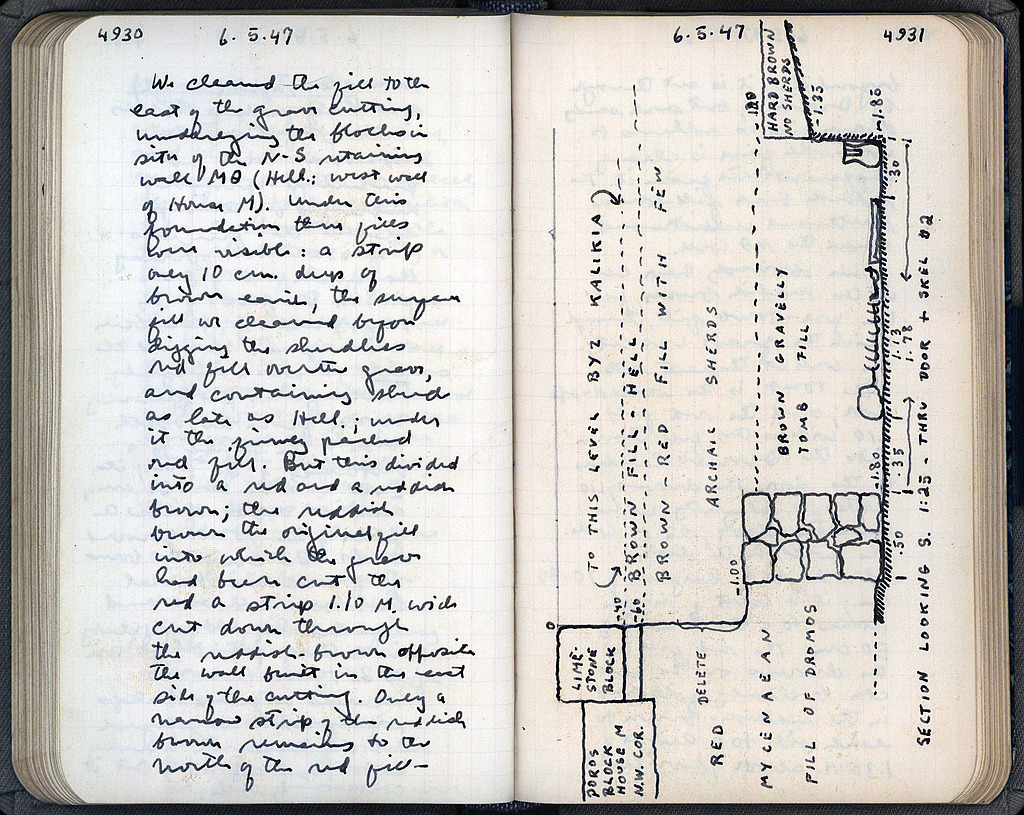 4930
6.5.47
We cleaned the fill to the
east of the grave cutting,
underlying the blocks in
situ of the N-S retaining
wall MΘ (Hell.; west wall
of House M). Under this
foundation three fills
were visible: a strip
only 10 cm. deep of
brown earth, the
fill we cleaned before
digging the sherdless
red fill over the grave,
and containing sherds
as late as Hell.; under
it the firmly packed
red fill. But this divided
into a red and a reddish
brown; the reddish
brown the original fill
into which the grave
had been cut the
red a strip 1.10 M. wide
cut down through
the reddish-brown opposite
the wall built in the east
side of the cutting. Only a
narrow strip of the reddish
brown remains to the
north of the red fill-
6.5.47
4931
HARD BROWN
NO SHERDS
-1.35
-1.85
-1.20
.30
TO THIS LEVEL BYZ KALIKIA
BROWN FILL - HELL
BROWN-RED FILL WITH FEW
ARCHAIC SHERDS
BROWN GRAVELLY
TOMB FILL
1.13
1.78
-1.80
.35
.50
0
-.40
-.60
-1.00
LIME-
STONE
BLOCK
POROS
BLOCK
HOUSE M
N.W. COR.
DELETE
RED
MYCENAEAN
FILL OF DROMOS
SECTION LOOKING S. 1:25 - THRU DOOR + SKEL #2